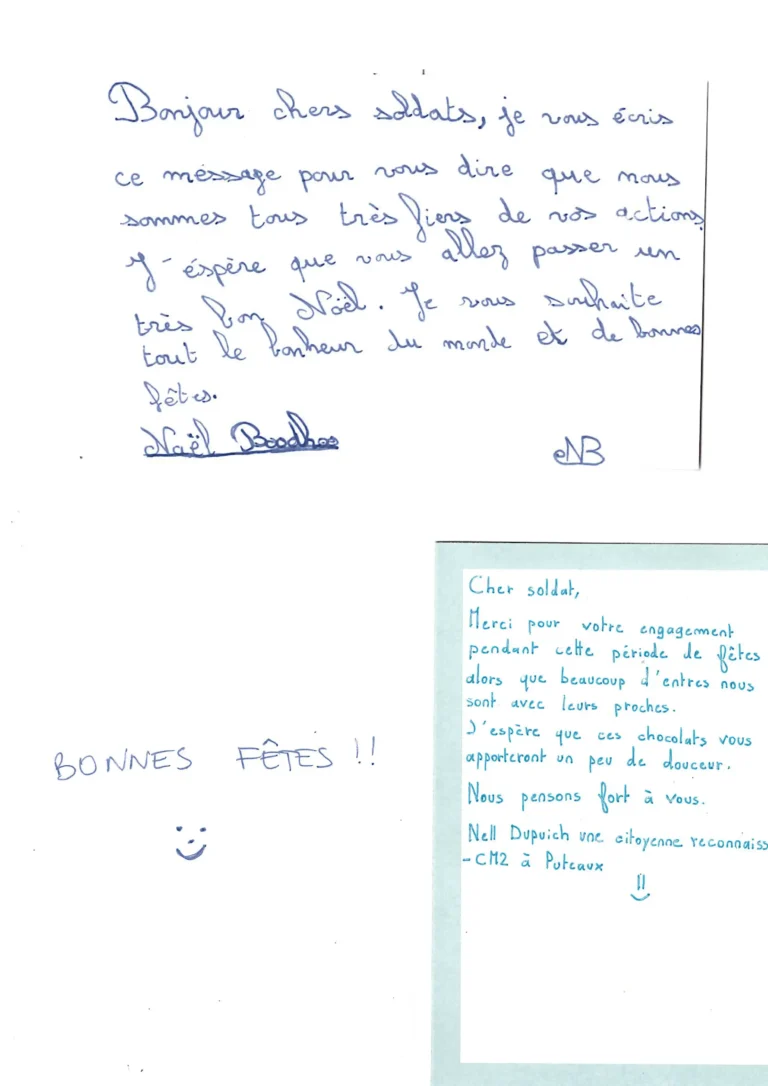 Bonjour chers soldats, je vous écris
ce méssage pour vous dire que nous
sommes tous très fiers de vos actions
J'éspère que vous allez passer un
très bon Noël. Je vous souhaite
tout le bonheur du monde et de bonnes
fêtes.
Naël Boodhoo
NB
BONNES FÊTES !!
Cher soldat,
Merci pour votre engagement
pendant cette période de fêtes
alors que beaucoup d'entres nous
sont avec leurs proches.
J'espère que ces chocolats vous
apporteront un peu de douceur.
Nous pensons fort à vous.
Nell Dupuich une citoyenne reconnaiss
-CM2 à Puteaux